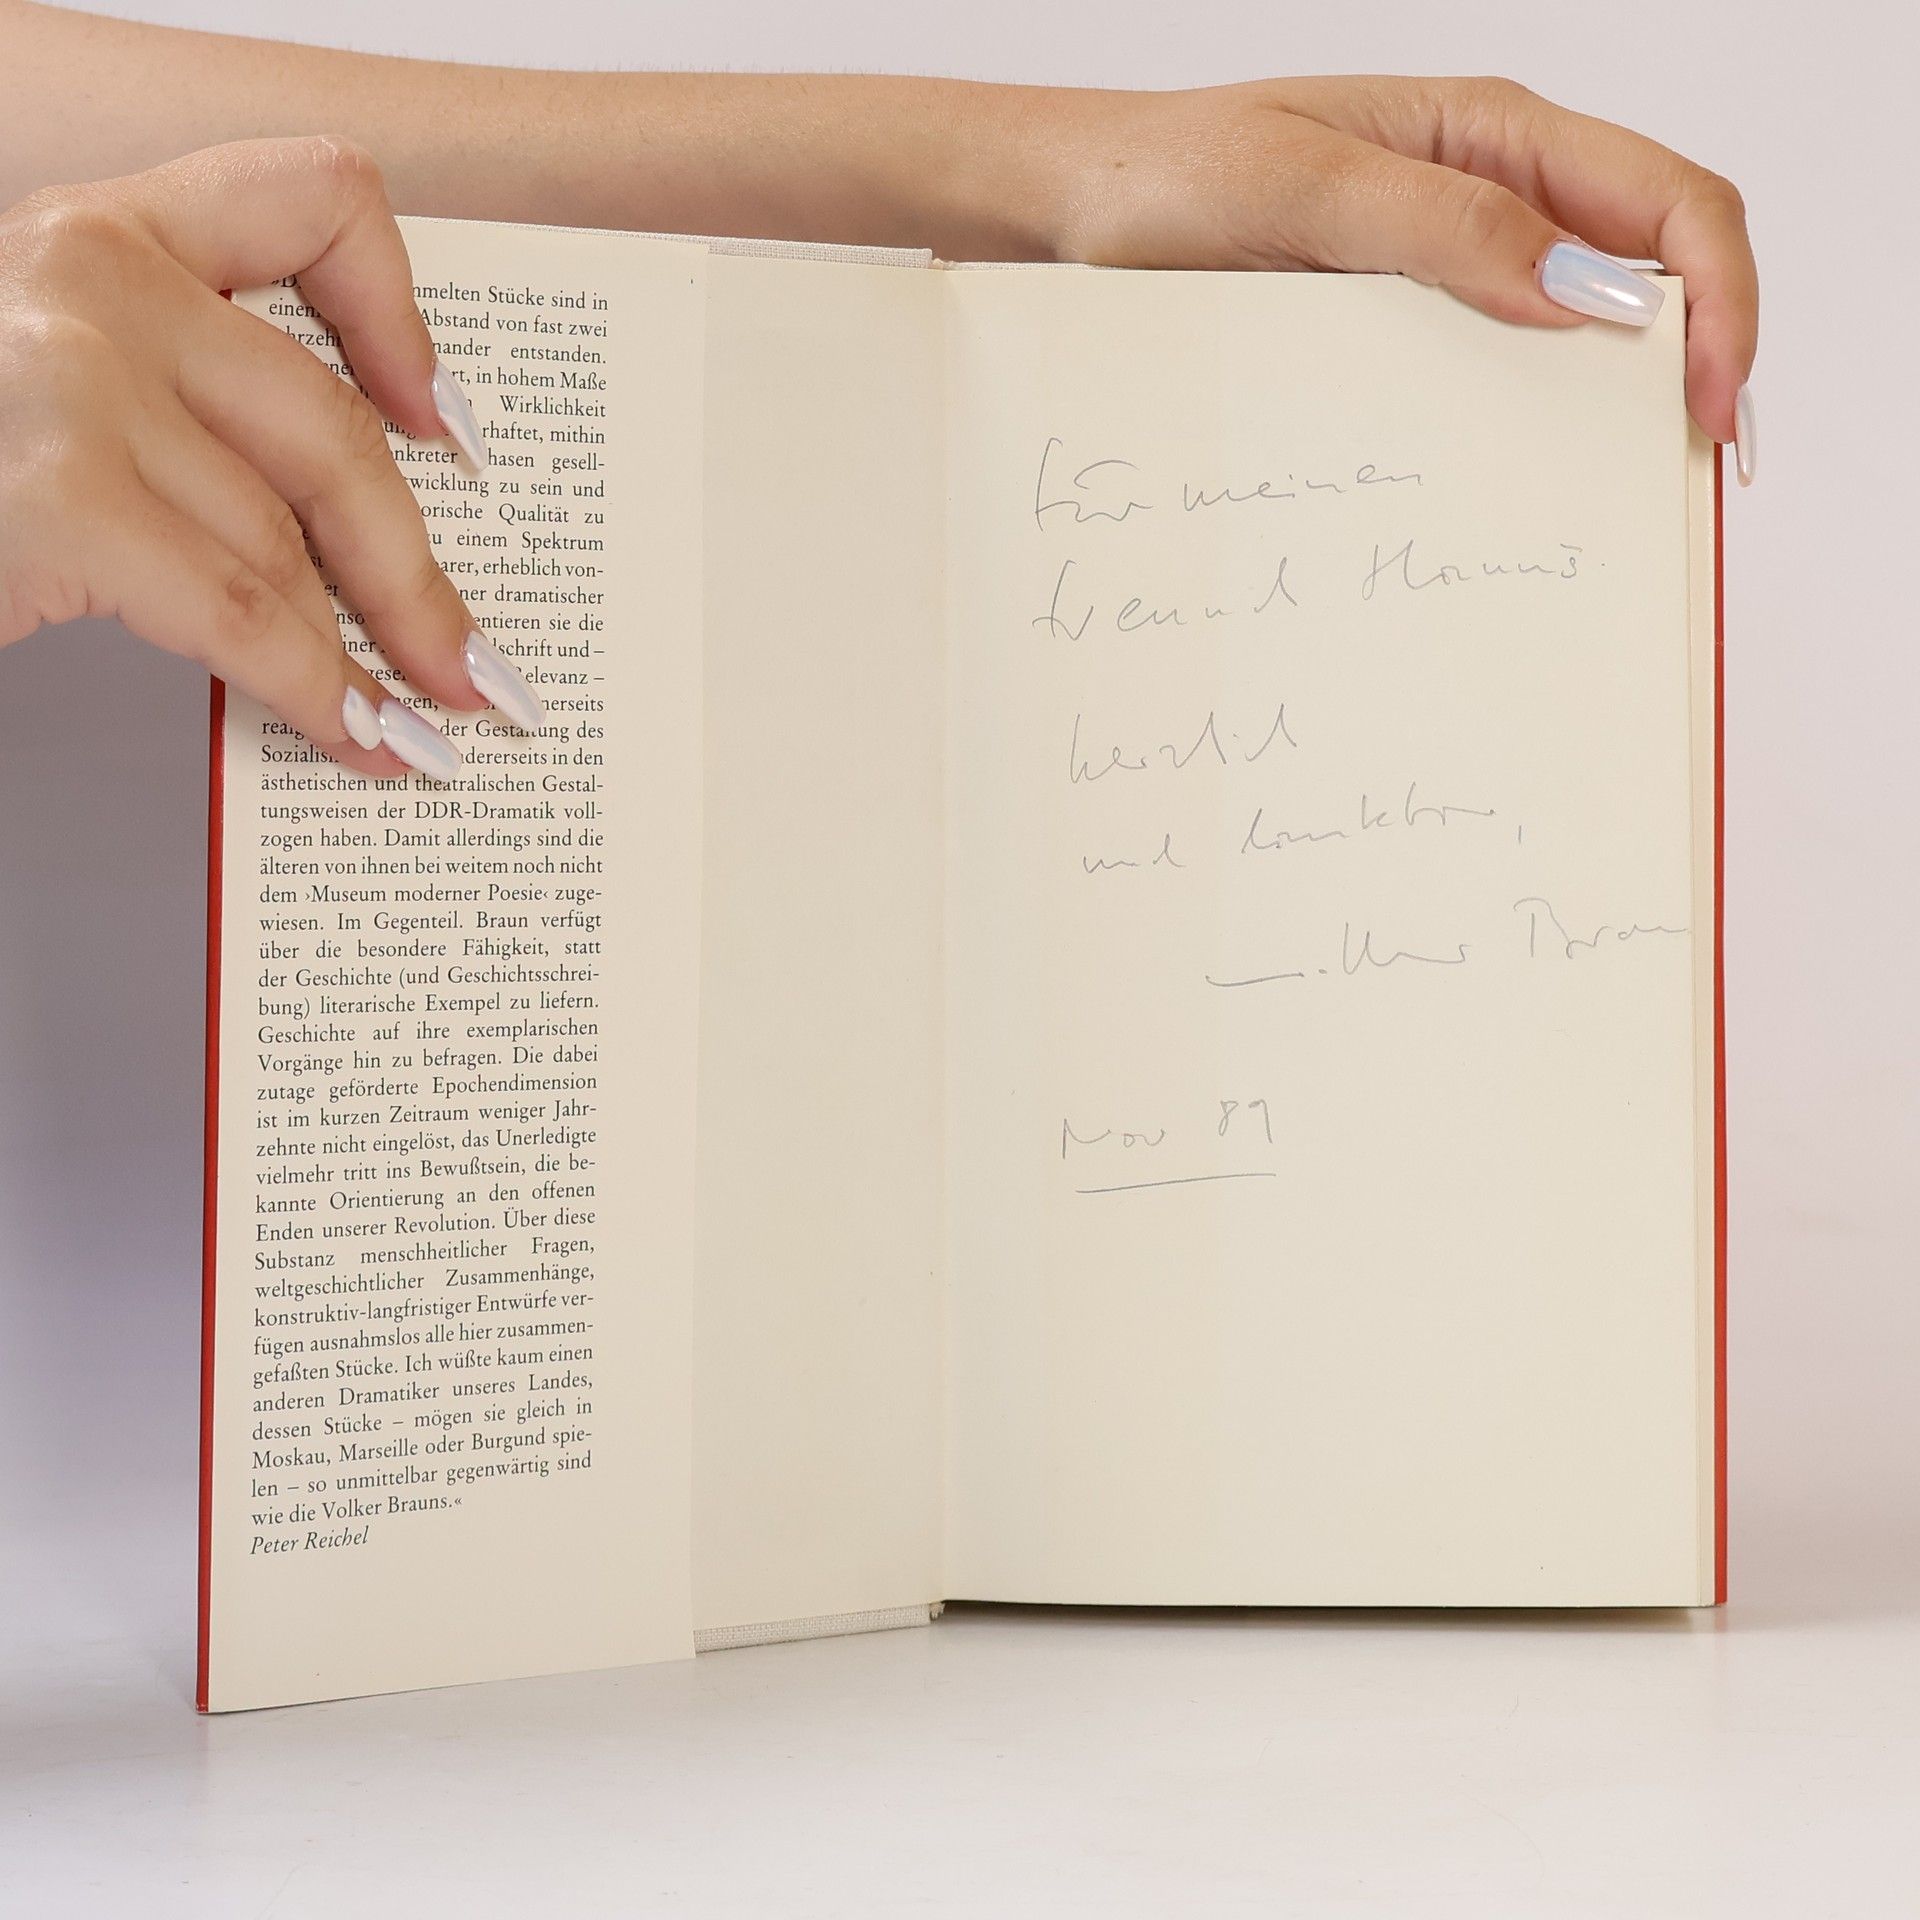 mmelten Stücke sind in
einem Abstand von fast zwei
nander entstanden.
rt, in hohem Maße
Wirklichkeit
rhaftet, mithin
nkreter hasen gesell-
wicklung zu sein und
orische Qualität zu
zu einem Spektrum
barer, erheblich von-
ner dramatischer
entieren sie die
iner schrift und –
elevanz –
gen, nerseits
der Gestaltung des
Sozialis ndererseits in den
ästhetischen und theatralischen Gestal-
tungsweisen der DDR-Dramatik voll-
zogen haben. Damit allerdings sind die
älteren von ihnen bei weitem noch nicht
dem ›Museum moderner Poesie‹ zuge-
wiesen. Im Gegenteil. Braun verfügt
über die besondere Fähigkeit, statt
der Geschichte (und Geschichtsschrei-
bung) literarische Exempel zu liefern.
Geschichte auf ihre exemplarischen
Vorgänge hin zu befragen. Die dabei
zutage geförderte Epochendimension
ist im kurzen Zeitraum weniger Jahr-
zehnte nicht eingelöst, das Unerledigte
vielmehr tritt ins Bewußtsein, die be-
kannte Orientierung an den offenen
Enden unserer Revolution. Über diese
Substanz menschheitlicher Fragen,
weltgeschichtlicher Zusammenhänge,
konstruktiv-langfristiger Entwürfe ver-
fügen ausnahmslos alle hier zusammen-
gefaßten Stücke. Ich wüßte kaum einen
anderen Dramatiker unseres Landes,
dessen Stücke – mögen sie gleich in
Moskau, Marseille oder Burgund spie-
len – so unmittelbar gegenwärtig sind
wie die Volker Brauns.«
Peter Reichel
Für meinen
Freund
herzlich
und dankbar,
Volker Braun
Nov 89